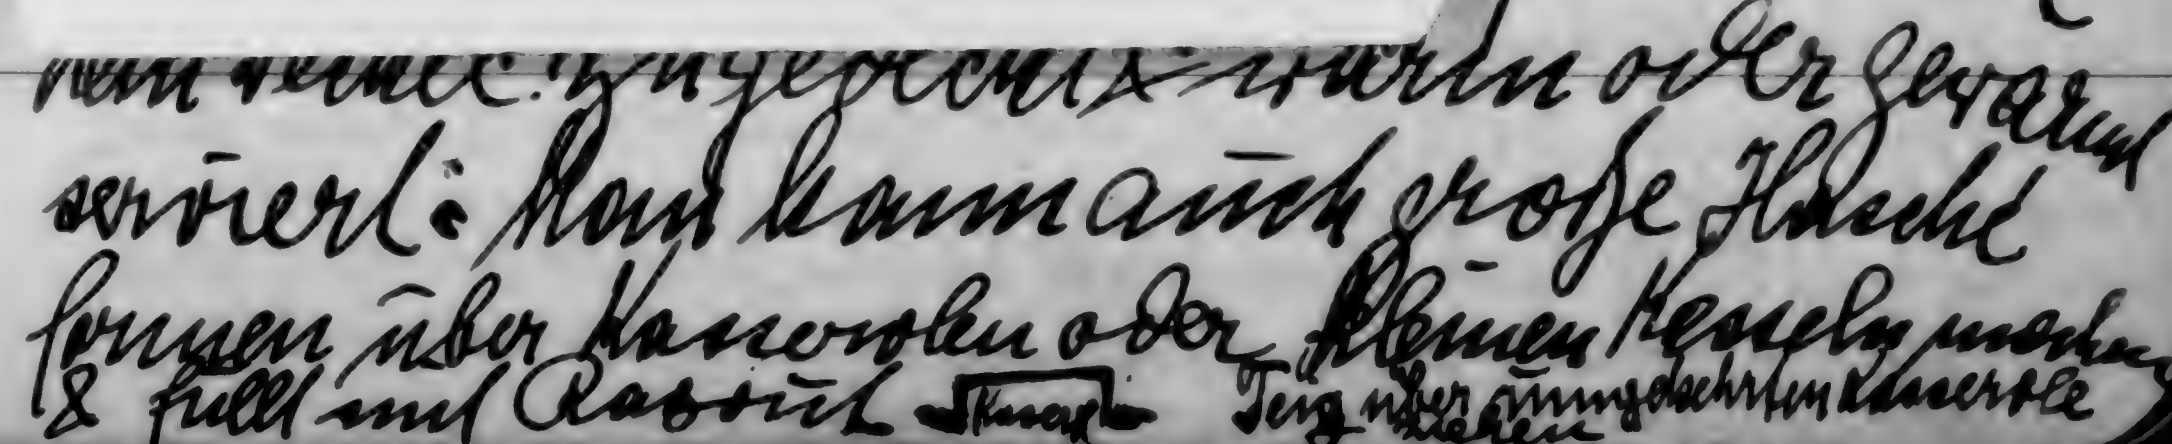 warm oder gewärmt
serviert: Man kann auch große Hasché
formen über Kasserolen oder kleinen Kesseln machen
& füllt mit Ragout Teig über umgedrehten Kasserole
ziehen